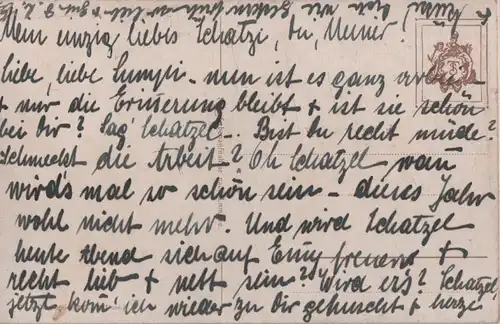 Mein einzig liebes Schatzi, Du, Meiner!
liebe, liebe Lumpli - nun ist es ganz
+ nur die Erinnerung bleibt + ist sie schön
bei Dir? Sag' Schatzel -. Bist Du recht müde?
Schmeckt die Arbeit? Oh Schatzel wann
wird's mal so schön sein - dieses Jahr
wohl nicht mehr. Und wird Schatzel
heute Abend sich auf Emy freuen +
recht lieb + nett sein? Wird er's? Schatzel
jetzt kom' ich wieder zu Dir gehuscht + herze